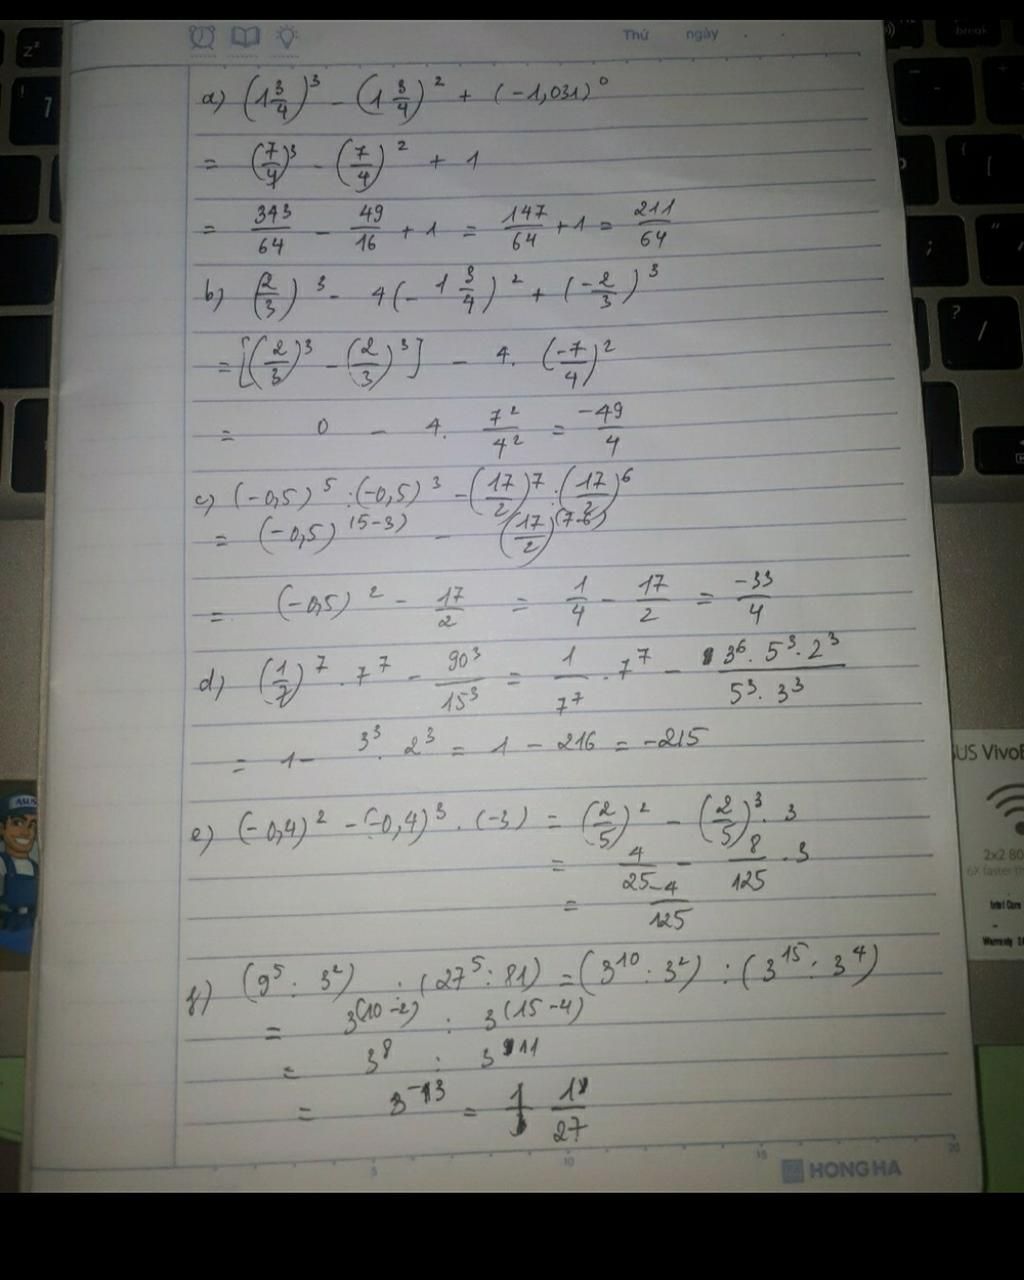 Thứ ngày
a) (1 3/4)^3 - (1 3/4)^2 + (-1,031)^0
= (7/4)^3 - (7/4)^2 + 1
= 343/64 - 49/16 + 1 = 147/64 + 1 = 211/64
b) (2/3)^3 - 4(-1 3/4)^2 + (-2/3)^3
= [(2/3)^3 - (2/3)^3] - 4. (-7/4)^2
= 0 - 4. 7^2/4^2 = -49/4
c) (-0,5)^5 : (-0,5)^3 - (17/2)^7 : (17/2)^6
= (-0,5)^(5-3) - (17/2)^(7-6)
= (-0,5)^2 - 17/2 = 1/4 - 17/2 = -33/4
d) (1/7)^7 . 7^7 - 90^3/15^3 = 1/7^7 . 7^7 - 3^6 . 5^3 . 2^3/5^3 . 3^3
= 1 - 3^3 . 2^3 = 1 - 216 = -215
e) (-0,4)^2 - (-0,4)^3 . (-3) = (2/5)^2 - (2/5)^3 . 3
= 4/25 - 8/125 . 3
= -4/125
f) (9^5 : 3^2) : (27^5 : 81) = (3^10 : 3^2) : (3^15 : 3^4)
= 3^(10-2) : 3^(15-4)
= 3^8 : 3^11
= 3^-3 = 1/27
5 10 15 20
HONG HA
break
US VivoB
2x2 80
6X faster th
Intel Core
Warranty